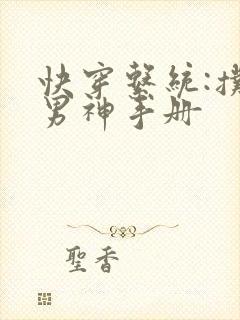 快穿繫統:撲
男神手册
聖香